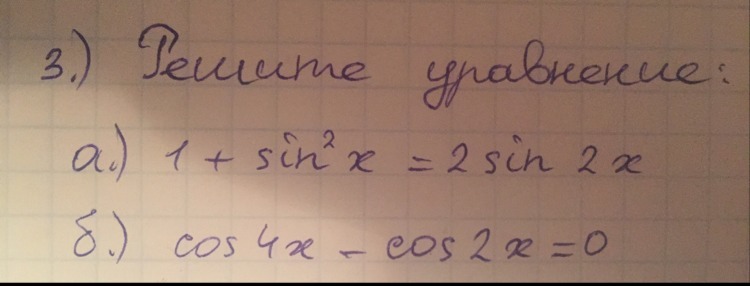 3.) Решите уравнение:
а.) 1 + sin²x = 2 sin 2x
б.) cos 4x - cos 2x = 0